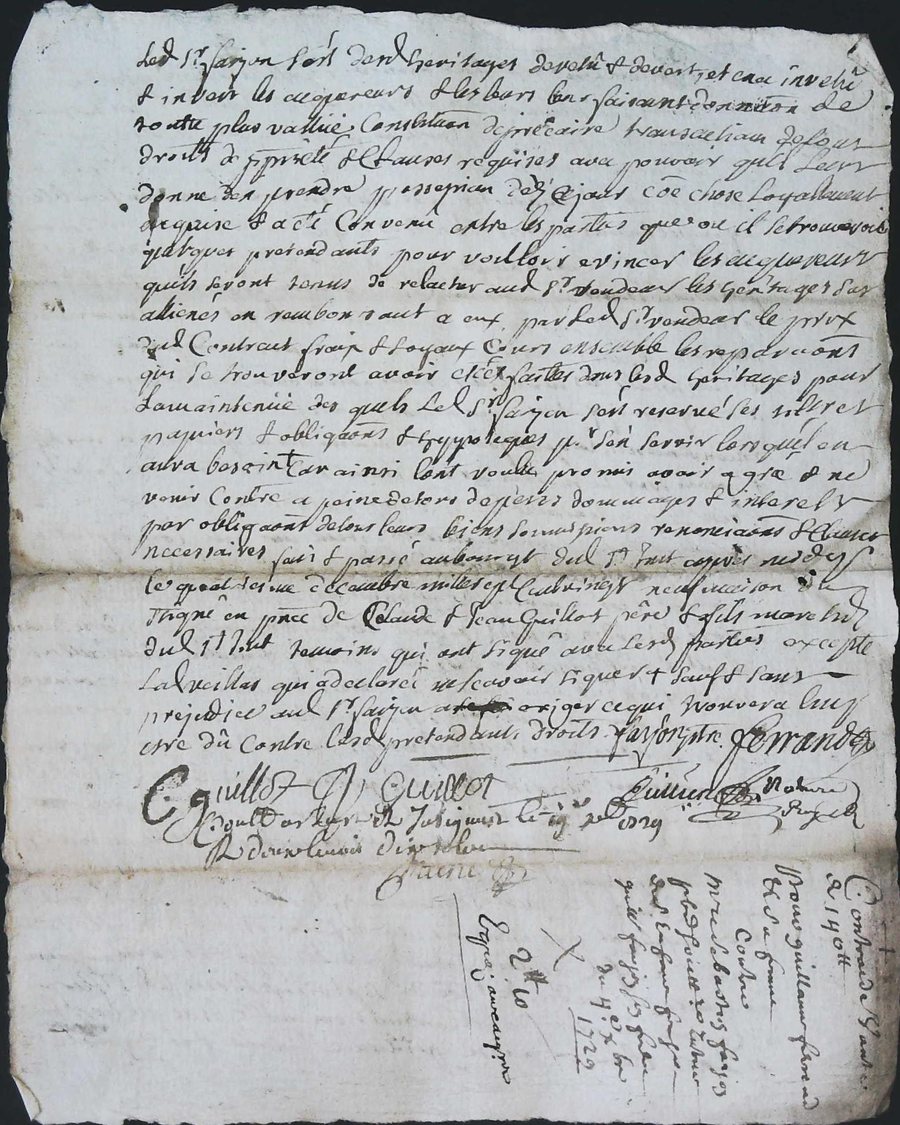 Led Sr farjon s'est desd heritages devetu & devert, et en a invetu
& invert les acquereurs & les leurs leur faisant donnation de
toutte plus vallüe Constitution de precaire translation de tous
droits de pprieté & Clauses requises avec pouvoir quil leur
donne den prendre possession dez ce jour coe chose Loyallement
acquise & a eté Convenu entre les parties que ou il se trouveroit
quelques pretendants pour voulloir evincer les acquereurs
quils seront tenus de relacher aud Sr vendeur les heritages sus
alienés en remboursant a eux par led Sr vendeur le prix
dud Contract fraix & loyaux Couts ensemble les reparaons
qui se trouveront avoir eté faittes dans lesd heritages pour
La maintenüe des quels led Sr farjon s'est reservé ses tiltres
papiers & obligaons & hyppoteques pr s'en servir lors quil en
aura besoin Car ainsi l'ont voulu promis avoir agreé & ne
venir Contre a peine de tous depens dommages & interets
par obligaons de tous leurs biens soumissions renonciaons & Clauses
necessaires fait & passé au bourgt dud St Just apprès midy
le quatrieme decembre mille sept Cent vingt neuf maison de
en pnce de Claude & Jean Guillot père & fils
dud St Just temoins qui ont signé avec lesd parties excepté
Lad veillas qui a declaré ne scavoir signer & sauf & sans
prejudice aud Sr farjon exiger ce qui trouvera luy
etre dû Contre lesd pretendants droits. farjon ptre. ferrand
C guillot J Guillot
Notaire Royal
le 1729
R douze livois dix sols

Contract de Vante
de 140tt
Pour guillaume ferrand
& sa femme
Contre
Mre Sebastien farjon
ptre
des Enfans
du 4e Xbre
1729
2tt 10